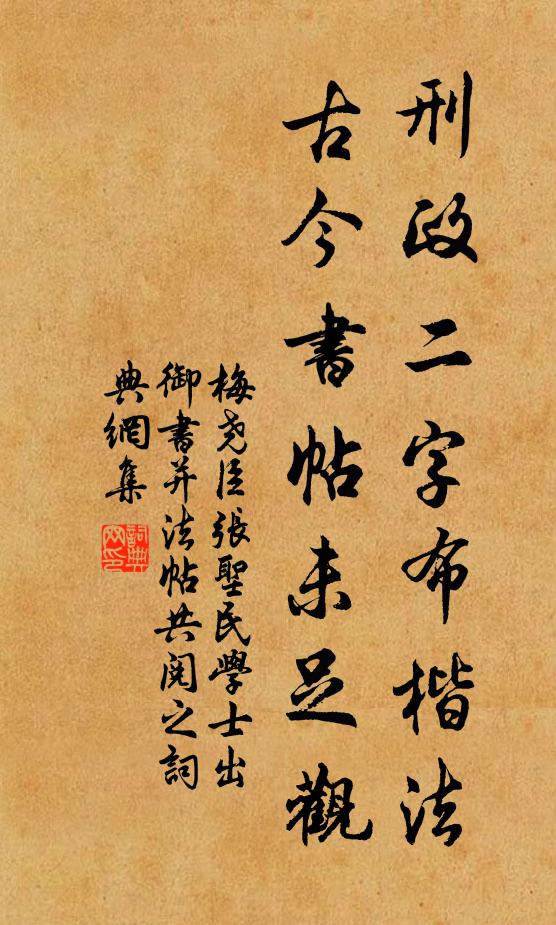 刑政二字布楷法
古今書帖未足觀
梅堯臣張聖民學士出
御書并法帖共閱之詞
典網集
詞典
网印